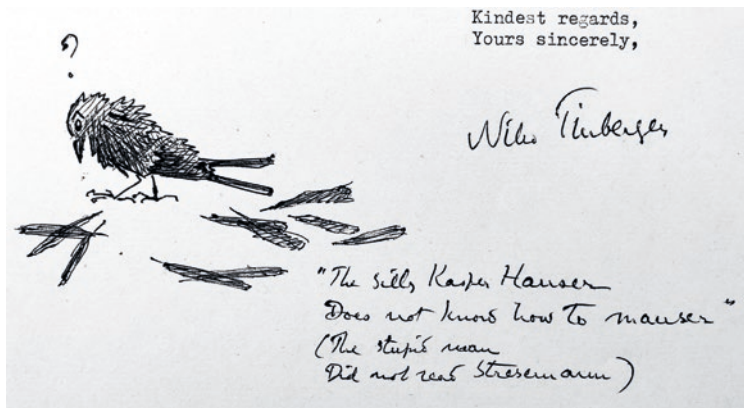 ?
Kindest regards,
Yours sincerely,
Niko Tinbergen
"The silly Kasper Hauser
Does not know how to mauser"
(The stupid man
Did not read Stresemann)